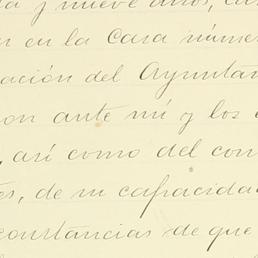 a y nueve años, ca
n en la Casa núme
ación del Ayunta
on ante mí y los
, así como del con
es, de su capacida
constancias de que